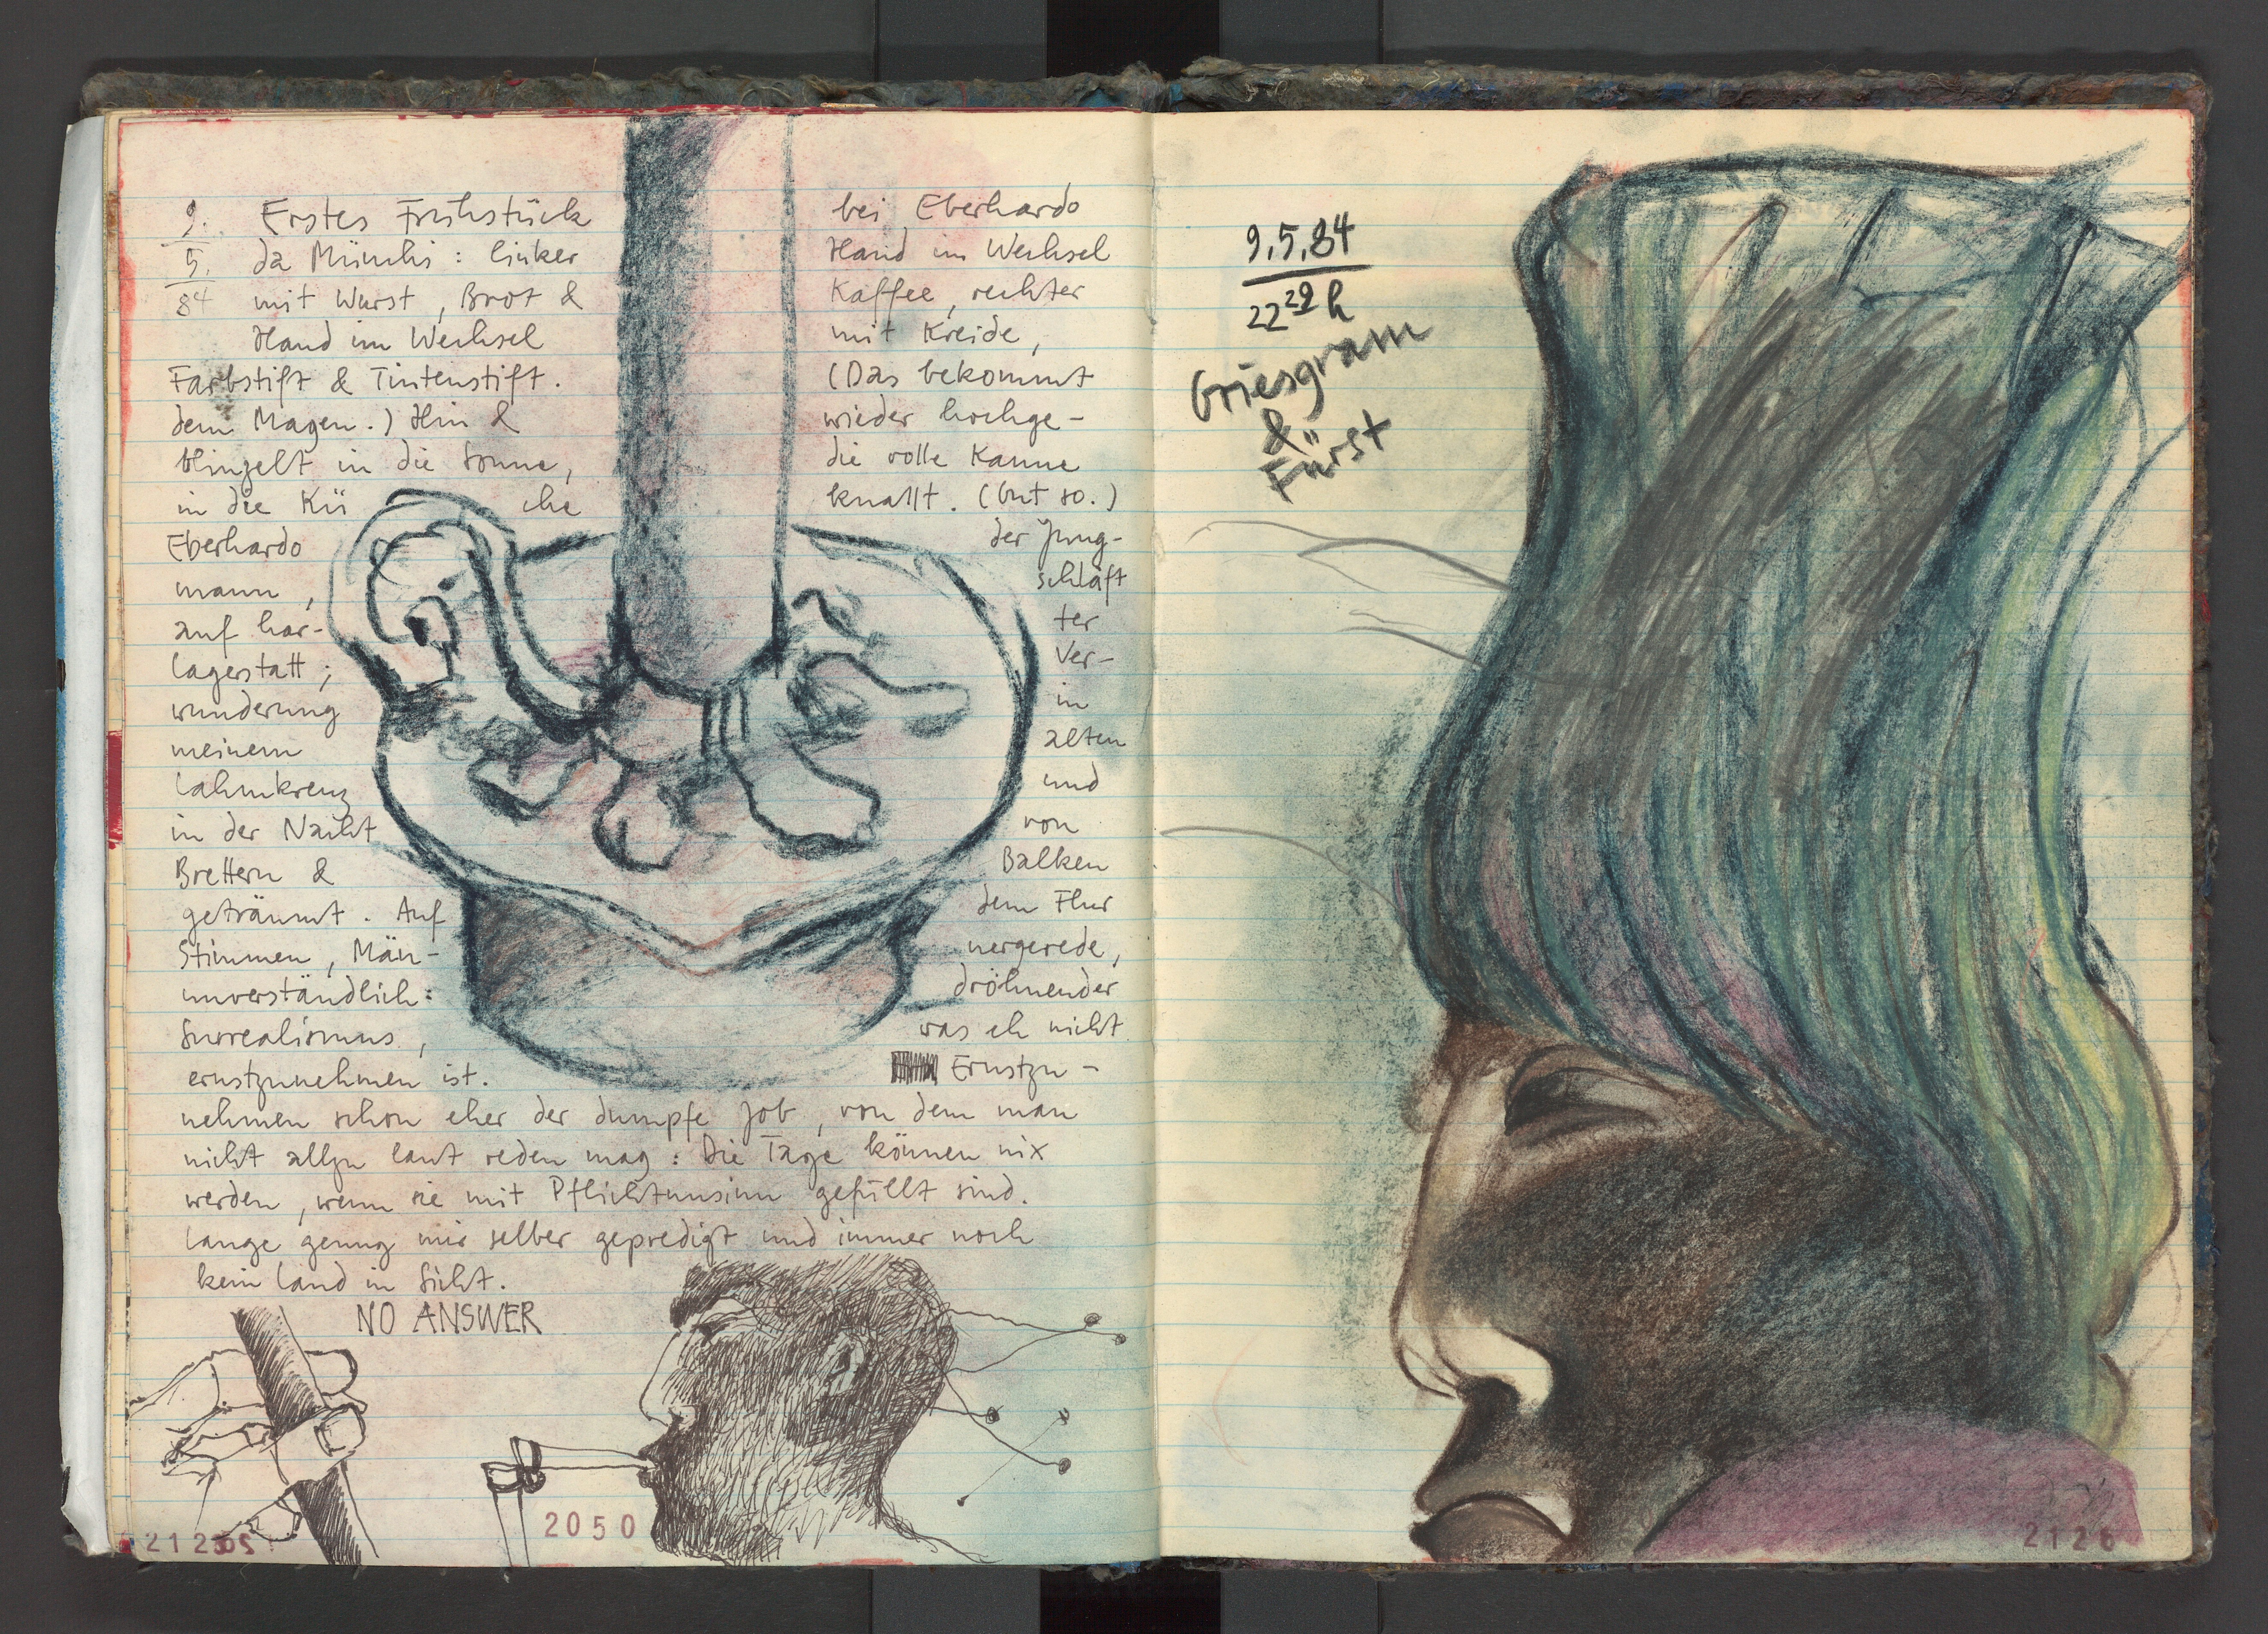 9. Erstes Frühstück bei Eberhardo
5. da Münchi: linker Hand im Wechsel
84 mit Wurst, Brot & Kaffee, rechter
Hand im Wechsel mit Kreide,
Farbstift & Tintenstift. (Das bekommt
dem Magen.) Hin & wieder hochge-
blinzelt in die Sonne, die volle Kanne
in die Kü che knallt. (Gut so.)
Eberhardo der Jung-
mann, schläft
auf har- ter
Lagerstatt; Ver-
wunderung in
meinem alten
Lahmkreuz und
in der Nacht von
Brettern & Balken
geträumt. Auf dem Flur
Stimmen, Män- nergerede,
unverständlich: dröhnender
Surrealismus, was eh nicht
ernstzunehmen ist. Ernstzu-
nehmen schon eher der dumpfe Job, von dem man
nicht allzu laut reden mag: Die Tage können nix
werden, wenn sie mit Pflichtunsinn gefüllt sind.
Lange genug mir selber gepredigt und immer noch
kein Land in Sicht.
NO ANSWER
2050
9.5.84
22 22 h
Griesgram
&
Fürst
2126